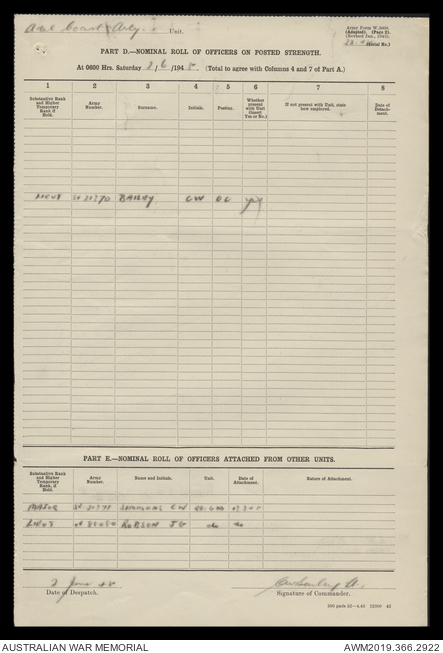 Unit.
Army Form W.3008.
(Adapted). (Page 2).
(Revised Jan., 1942).
(Serial No.)
PART D.—NOMINAL ROLL OF OFFICERS ON POSTED STRENGTH.
At 0600 Hrs. Saturday 2/6/1945. (Total to agree with Columns 4 and 7 of Part A.)
1 2 3 4 5 6 7 8
Substantive Rank and Higher Temporary Rank if Held. Army Number. Surname. Initials. Posting. Whether present with Unit (Insert Yes or No.) If not present with Unit, state how employed. Date of Detachment.
LIEUT CW OC yes
PART E.—NOMINAL ROLL OF OFFICERS ATTACHED FROM OTHER UNITS.
Substantive Rank and Higher Temporary Rank, if Held. Army Number. Name and Initials. Unit. Date of Attachment. Nature of Attachment.
MAJOR CW
LIEUT ROBSON JG do do
2 June 45
Date of Despatch. Signature of Commander.
AUSTRALIAN WAR MEMORIAL AWM2019.366.2922